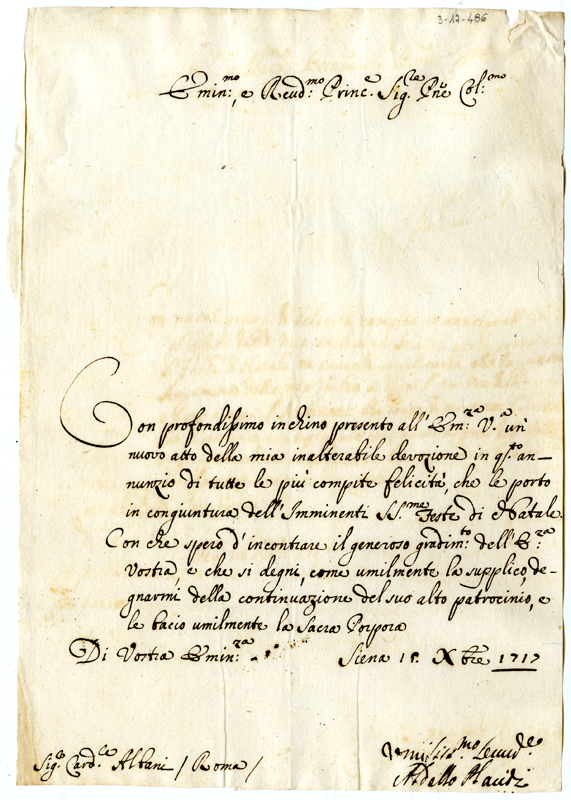 3-17-486
Emin:mo, e Reud:mo Princ.e Sig.re Pne Col:mo
Con profondissimo inchino presento all' Em:za V.a un'
nuovo atto della mia inalterabile devozione in q.sto an-
nunzio di tutte le più compite felicità, che le porto
in congiuntura dell'Imminenti SS.me Feste di Natale.
Con che spero d'incontrare il generoso gradim:to dell'E:za
Vostra, e che si degni, come umilmente la supplico, de-
gnarmi della continuazione del suo alto patrocinio, e
le bacio umilmente la Sacra Porpora
Di Vostra Emin:za
Siena 15 Xbre 1717
Sig.r Card.le Albani / Roma /
Umiliss:mo